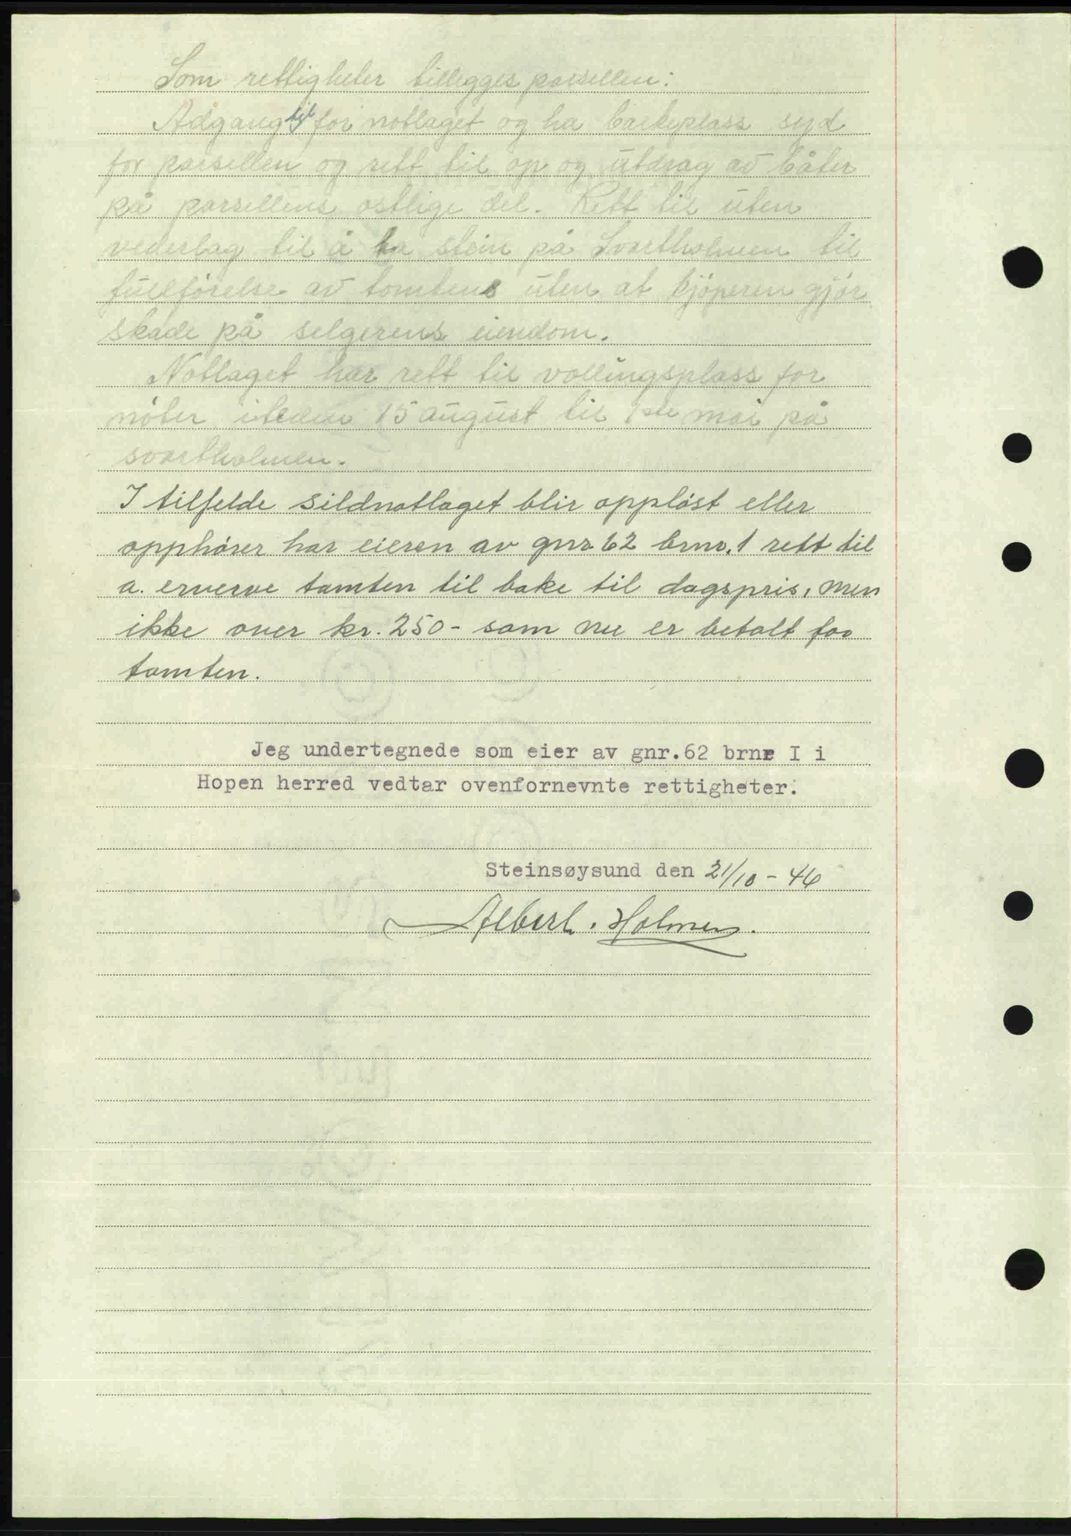 Som rettigheter tillegges parsellen:
Adgang til for notlaget og ha barkeplass syd
for parsellen og rett til op og utdrag av båter
på parsellens østlige del. Rett til uten
vederlag til å ta stein på Svartholmen til
fullførelse av tomtens uten at kjøperen gjør
skade på selgerens eiendom.
Notlaget har rett til vollingsplass for
nøter i tiden 15 august til 1ste mai på
svartholmen.
I tilfelde sildnotlaget blir oppløst eller
opphører har eieren av gnr 62 brnr. 1 rett til
a. erverve tomten til bake til dagspris, men
ikke over kr. 250- som nu er betalt for
tomten.
Jeg undertegnede som eier av gnr.62 brnr I i
Hopen herred vedtar ovenfornevnte rettigheter.
Steinsøysund den 21/10 - 46
Albert. Holmen.